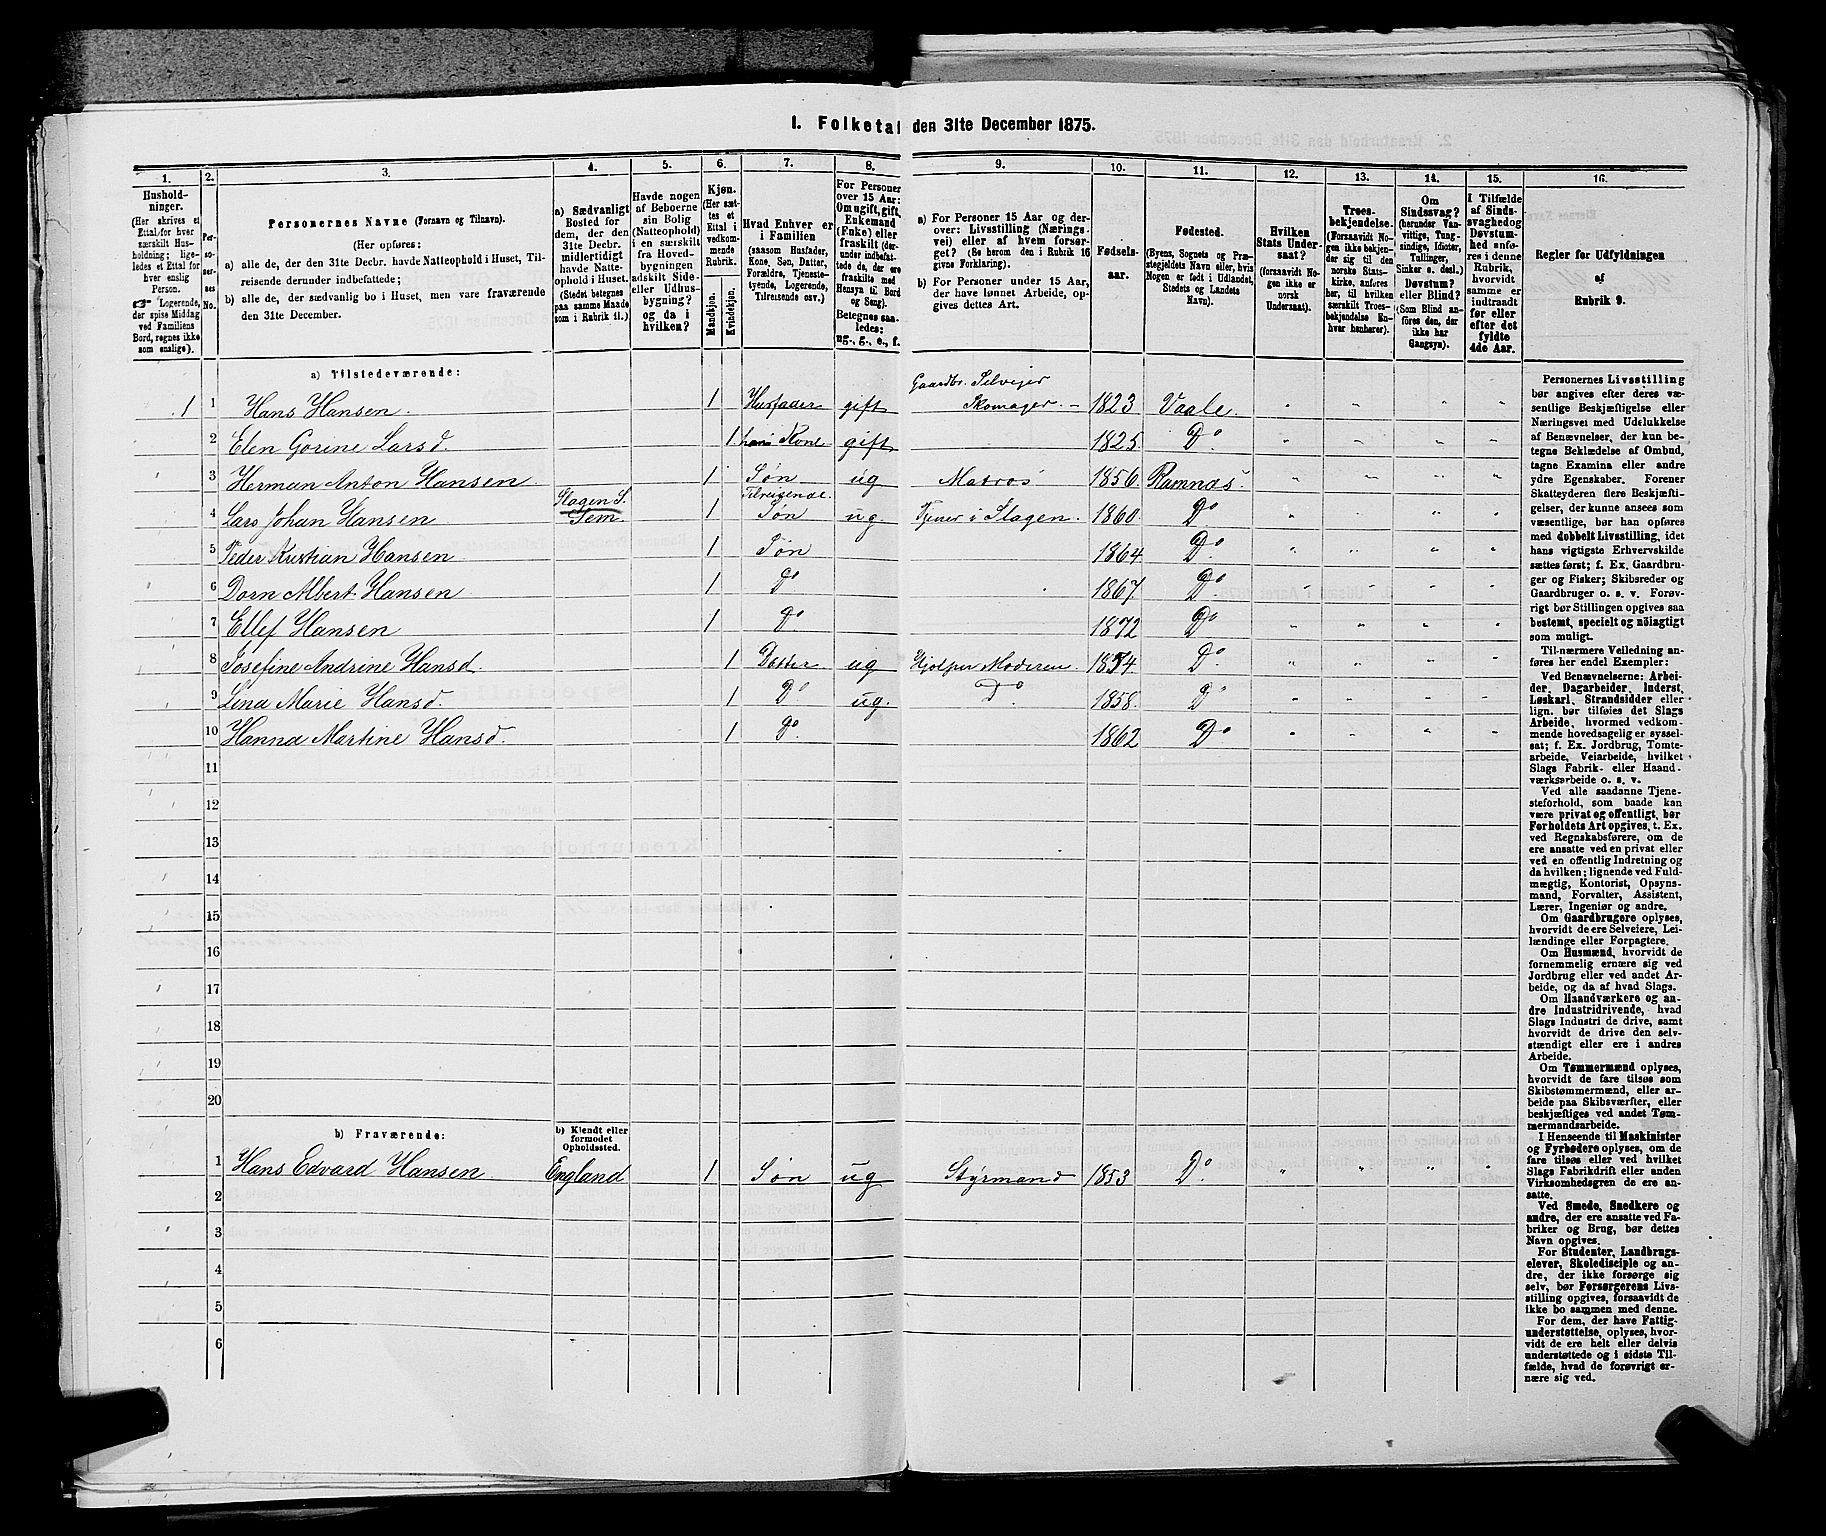 I. Folketal den 31te December 1875.
1. 2. 3. 4. 5. 6. 7. 8. 9. 10. 11. 12. 13. 14. 15. 16.
Husholdninger. (Her skrives et Ettal for hver særskilt Husholdning; ligeledes et Ettal for hver enslig Person. ☞ Logerende, der spise Middag ved Familiens Bord, regnes ikke som enslige).
Personernes No.
Personernes Navne (Fornavn og Tilnavn).
(Her opføres:
a) alle de, der den 31te Decbr. havde Natteophold i Huset, Tilreisende derunder indbefattede;
b) alle de, der sædvanlig bo i Huset, men vare fraværende den 31te December.
a) Sædvanligt Bosted for dem, der den 31te Decbr. midlertidigt havde Natteophold i Huset. (Stedet betegnes paa samme Maade som i Rubrik 11.)
Havde nogen af Beboerne sin Bolig (Natteophold) i en særskilt fra Hovedbygningen adskilt Side- eller Udhusbygning? og da i hvilken?
Kjøn. (Her sættes et Ettal i vedkommende Rubrik.
Mandkjøn. Kvindekjøn.
Hvad Enhver er i Familien (saasom Husfader, Kone, Søn, Datter, Forældre, Tjenestetyende, Logerende, Tilreisende osv.)
For Personer over 15 Aar: Om ugift, gift, Enkemand (Enke) eller fraskilt (derunder indbefattede de, der ere fraskilte med Hensyn til Bord og Seng). Betegnes saaledes: ug., g., e., f.
a) For Personer 15 Aar og derover: Livsstilling (Næringsvei) eller af hvem forsørget? (Se herom den i Rubrik 16 givne Forklaring).
b) For Personer under 15 Aar, der have lønnet Arbeide, opgives dettes Art.
Fødselsaar.
Fødested. (Byens, Sognets og Præstegjeldets Navn eller, hvis Nogen er født i Udlandet, Stedets og Landets Navn).
Hvilken Stats Undersaat? (forsaavidt Nogen ikke er norsk Undersaat).
Troesbekjendelse. (Forsaavidt Nogen ikke bekjender sig til den norske Statskirke, anføres her, til hvilken særskilt Troesbekjendelse Enhver henhører).
Om Sindssvag? (herunder Vanvittige, Tungsindige, Idioter, Tullinger, Sinker o. desl.) Døvstum? eller Blind? (Som Blind anføres den, der ikke har Gangsyn).
I Tilfælde af Sindssvaghed og Døvstumhed anføres i denne Rubrik, hvorvidt samme er indtraadt før eller efter det fyldte 4de Aar.
Regler for Udfyldningen af Rubrik 9.
a) Tilstedeværende:
1 1 Hans Hansen. 1 Husfader gift Gaardbr. Selveier Skomager. 1823 Vaale.
2 Elen Gorine Larsd. 1 hans Kone gift 1825 Do
3 Herman Anton Hansen 1 Søn ug Matros 1856 Ramnæs.
4 Lars Johan Hansen Slagen S. Sem 1 Tilreisende. Søn ug. Tjener i Slagen. 1860 Do
5 Peder Kristian Hansen 1 Søn 1864 Do
6 Dorn Albert Hansen 1 Do 1867 Do
7 Ellef Hansen 1 Do 1872 Do
8 Josefine Andrine Hansd. 1 Datter ug Hjelper Moderen. 1854 Do
9 Lina Marie Hansd. 1 Do ug. Do 1858 Do
10 Hanna Martine Hansd. 1 Do 1862 Do
11
12
13
14
15
16
17
18
19
20
b) Fraværende: b) Kjendt eller formodet Opholdssted.
1 Hans Edvard Hansen England 1 Søn ug Styrmand 1853 Do
2
3
4
5
6
Personernes Livsstilling
bør angives efter deres væ-
sentlige Beskjæftigelse eller
Næringsvei med Udelukkelse
af Benævnelser, der kun be-
tegne Beklædelse af Ombud,
tagne Examina eller andre
ydre Egenskaber. Forener
Skatteyderen flere Beskjæfti-
gelser, der kunne ansees som
væsentlige, bør han opføres
med dobbelt Livsstilling, idet
hans vigtigste Erhvervskilde
sættes først; f. Ex. Gaardbru-
ger og Fisker; Skibsreder og
Gaardbruger o. s. v. Forøv-
rigt bør Stillingen opgives saa
bestemt, specielt og nøiagtigt
som muligt.
Til nærmere Veiledning an-
føres her endel Exempler:
Ved Benævnelserne: Arbei-
der, Dagarbeider, Inderst,
Løskarl, Strandsidder eller
lign. bør tilføies det Slags
Arbeide, hvormed vedkom-
mende hovedsagelig er syssel-
sat; f. Ex. Jordbrug, Tomte-
arbeide, Veiarbeide, hvilket
Slags Fabrik- eller Haand-
værksarbeide o. s. v.
Ved alle saadanne Tjene-
steforhold, som baade kan
være privat og offentligt, bør
Forholdets Art opgives, t. Ex.
ved Regnskabsførere, om de
ere ansatte ved en privat eller
ved en offentlig Indretning og
da hvilken; lignende ved Fuld-
mægtig, Kontorist, Opsyns-
mand, Forvalter, Assistent,
Lærer, Ingeniør og andre.
Om Gaardbrugere oplyses,
hvorvidt de ere Selveiere, Lei-
lændinge eller Forpagtere.
Om Husmænd, hvorvidt de
fornemmelig ernære sig ved
Jordbrug eller ved andet Ar-
beide, og da af hvad Slags.
Om Haandværkere og an-
dre Industridrivende, hvad
Slags Industri de drive, samt
hvorvidt de drive den selv-
stændigt eller ere i andres
Arbeide.
Om Tømmermænd oplyses,
hvorvidt de fare tilsøs som
Skibstømmermænd, eller ar-
beide paa Skibsværfter, eller
beskjæftiges ved andet Tøm-
mermandsarbeide.
I Henseende til Maskinister
og Fyrbødere oplyses, om de
fare tilsøs eller ved hvilket
Slags Fabrikdrift eller anden
Virksomhed de ere an-
satte.
Ved Smede, Snedkere og
andre, der ere ansatte ved Fa-
briker og Brug, bør dettes
Navn opgives.
For Studenter, Landbrugs-
elever, Skoledisciple og an-
dre, der ikke forsørge sig
selv, bør Forsørgerens Livs-
stilling opgives, forsaavidt de
ikke bo sammen med denne.
For dem, der have Fattig-
understøttelse, oplyses, hvor-
vidt de ere helt eller delvis
understøttede og i sidste Til-
fælde, hvad de forøvrigt er-
nære sig ved.